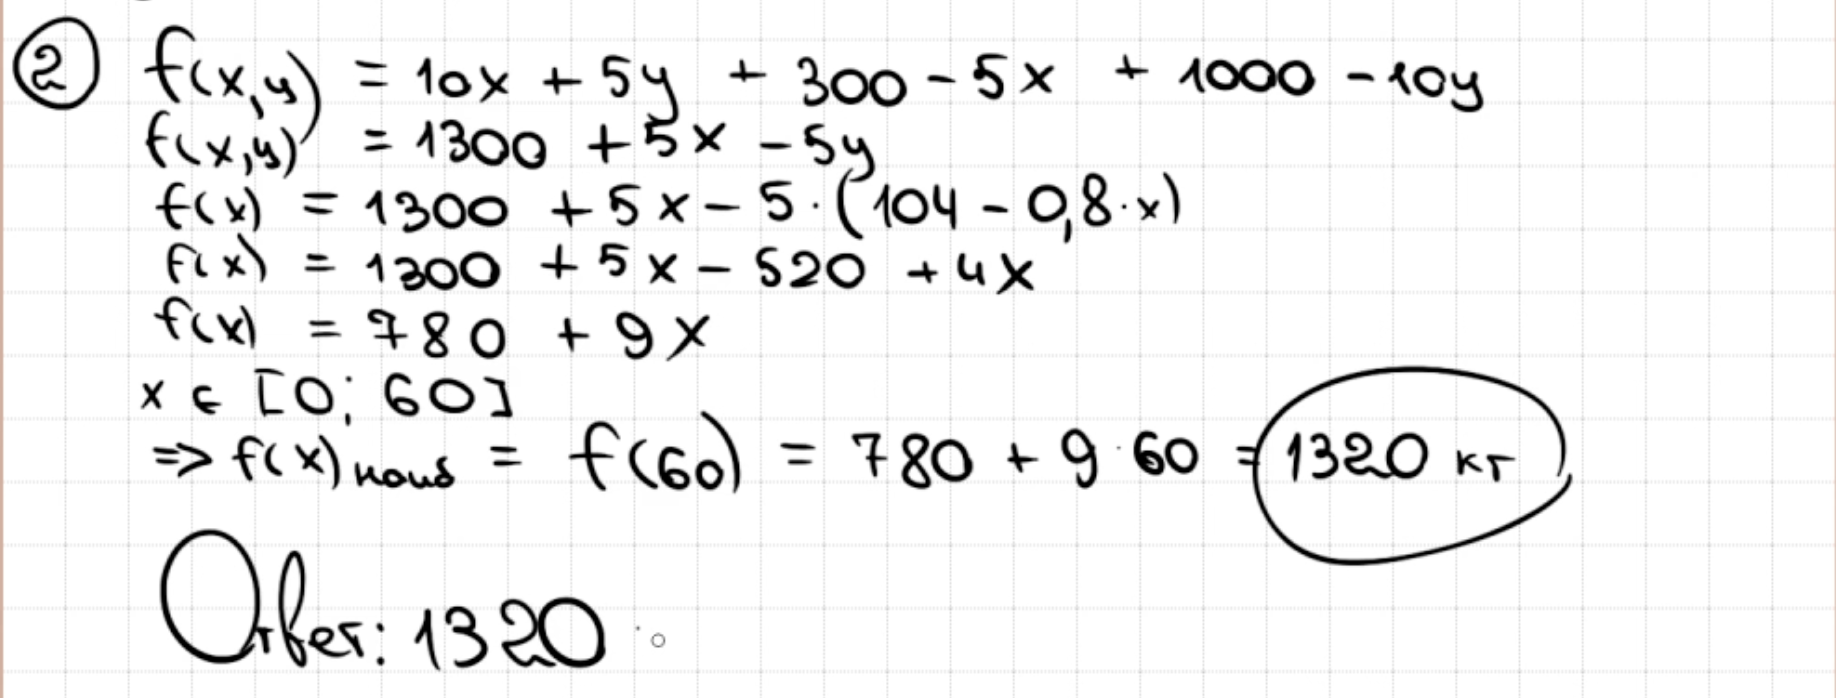 ② f(x,y) = 10x + 5y + 300 - 5x + 1000 - 10y
f(x,y) = 1300 + 5x - 5y
f(x) = 1300 + 5x - 5·(104 - 0,8·x)
f(x) = 1300 + 5x - 520 + 4x
f(x) = 780 + 9x
x ∈ [0; 60]
=> f(x)наиб = f(60) = 780 + 9·60 = 1320 кг
Ответ: 1320